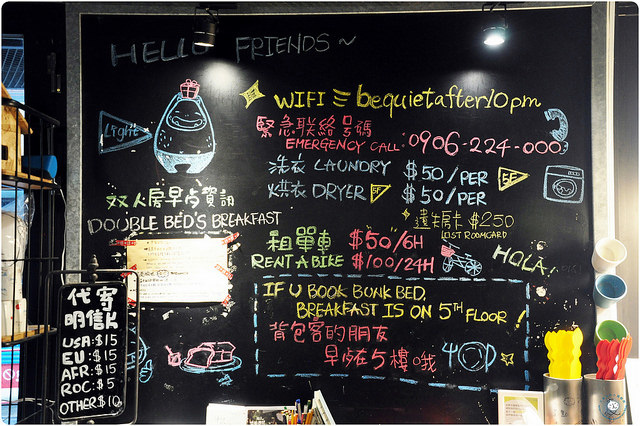 HELLO FRIENDS~
Light
WIFI bequietafter10pm
緊急聯絡號碼
EMERGENCY CALL: 0906-224-000
洗衣 LAUNDRY $50/PER 5F
烘衣 DRYER 7F $50/PER
遺失房卡 $250
LOST ROOMCARD
双人房早点資訊
DOUBLE BED'S BREAKFAST
租單車 $50/6H
RENT A BIKE $100/24H
HOLA!
IF U BOOK BUNK BED,
BREAKFAST IS ON 5TH FLOOR!
背包客的朋友
早点在5樓哦
代寄
明信片
USA:$15
EU:$15
AFR:$15
ROC:$5
OTHER$10